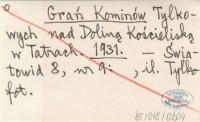 Grań Kominów Tylko-
wych nad Doliną Kościeliską
w Tatrach. 1931. — Świa-
towid 8, nr 9: , il. Tylko
fot.